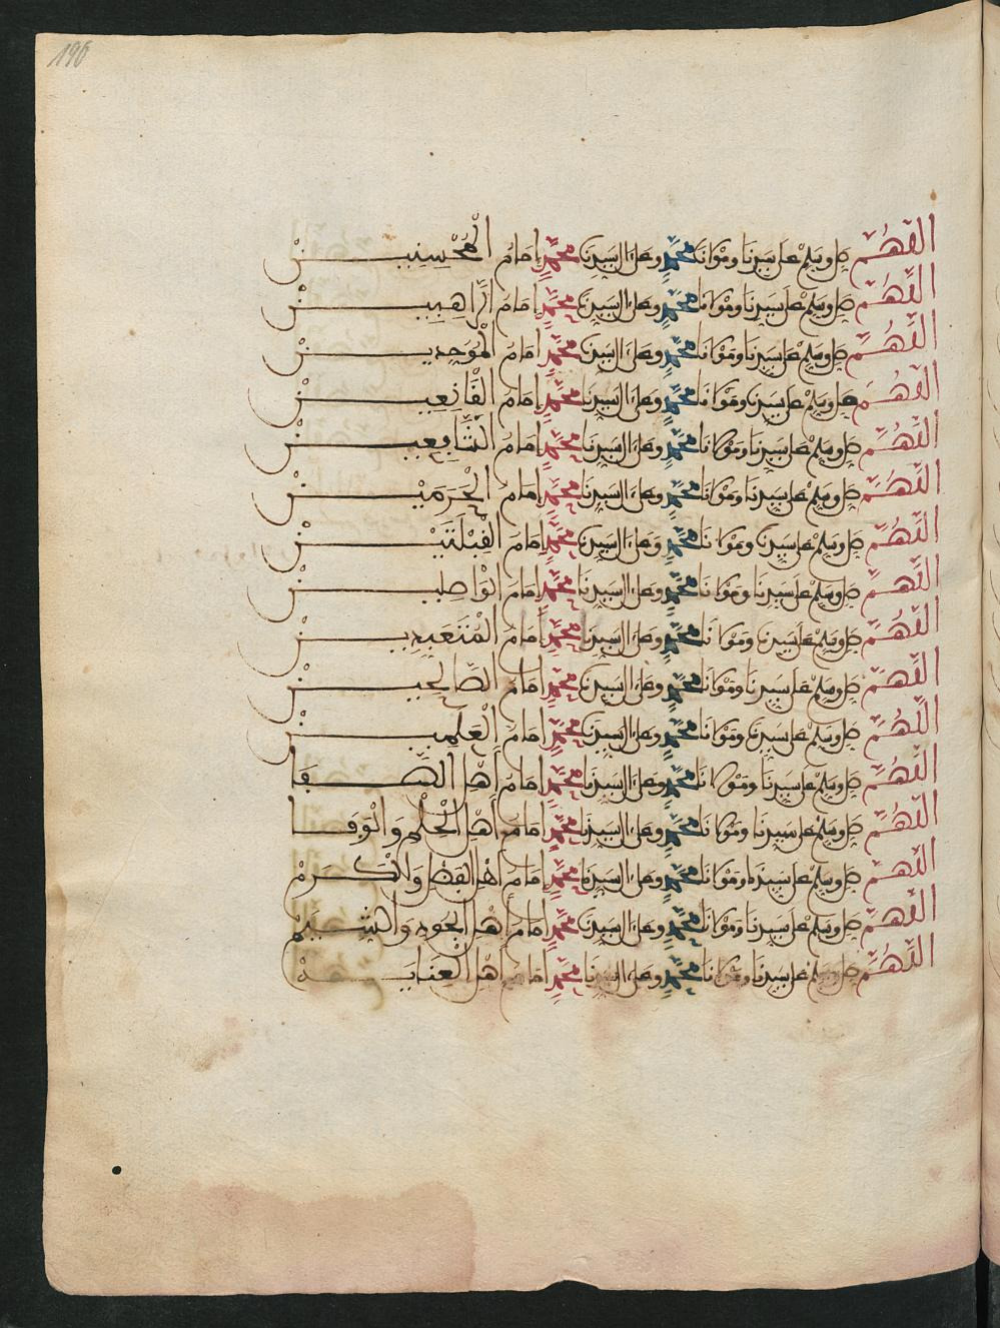 196
اللهم صل وسلم على سيدنا ومولانا محمد وعلى ءال سيدنا محمد إمام المحسنين
اللهم صل وسلم على سيدنا ومولانا محمد وعلى ءال سيدنا محمد إمام الراهبين
اللهم صل وسلم على سيدنا ومولانا محمد وعلى ءال سيدنا محمد إمام الموحدين
اللهم صل وسلم على سيدنا ومولانا محمد وعلى ءال سيدنا محمد إمام القانعين
اللهم صل وسلم على سيدنا ومولانا محمد وعلى ءال سيدنا محمد إمام الشافعين
اللهم صل وسلم على سيدنا ومولانا محمد وعلى ءال سيدنا محمد إمام الحرمين
اللهم صل وسلم على سيدنا ومولانا محمد وعلى ءال سيدنا محمد إمام القبلتين
اللهم صل وسلم على سيدنا ومولانا محمد وعلى ءال سيدنا محمد إمام الواصلين
اللهم صل وسلم على سيدنا ومولانا محمد وعلى ءال سيدنا محمد إمام المتعبدين
اللهم صل وسلم على سيدنا ومولانا محمد وعلى ءال سيدنا محمد إمام الصالحين
اللهم صل وسلم على سيدنا ومولانا محمد وعلى ءال سيدنا محمد إمام العلمين
اللهم صل وسلم على سيدنا ومولانا محمد وعلى ءال سيدنا محمد إمام أهل الصفا
اللهم صل وسلم على سيدنا ومولانا محمد وعلى ءال سيدنا محمد إمام أهل الحلم والوفا
اللهم صل وسلم على سيدنا ومولانا محمد وعلى ءال سيدنا محمد إمام أهل الفضل والكرم
اللهم صل وسلم على سيدنا ومولانا محمد وعلى ءال سيدنا محمد إمام أهل الجود والشيم
اللهم صل وسلم على سيدنا ومولانا محمد وعلى ءال سيدنا محمد إمام أهل العناية